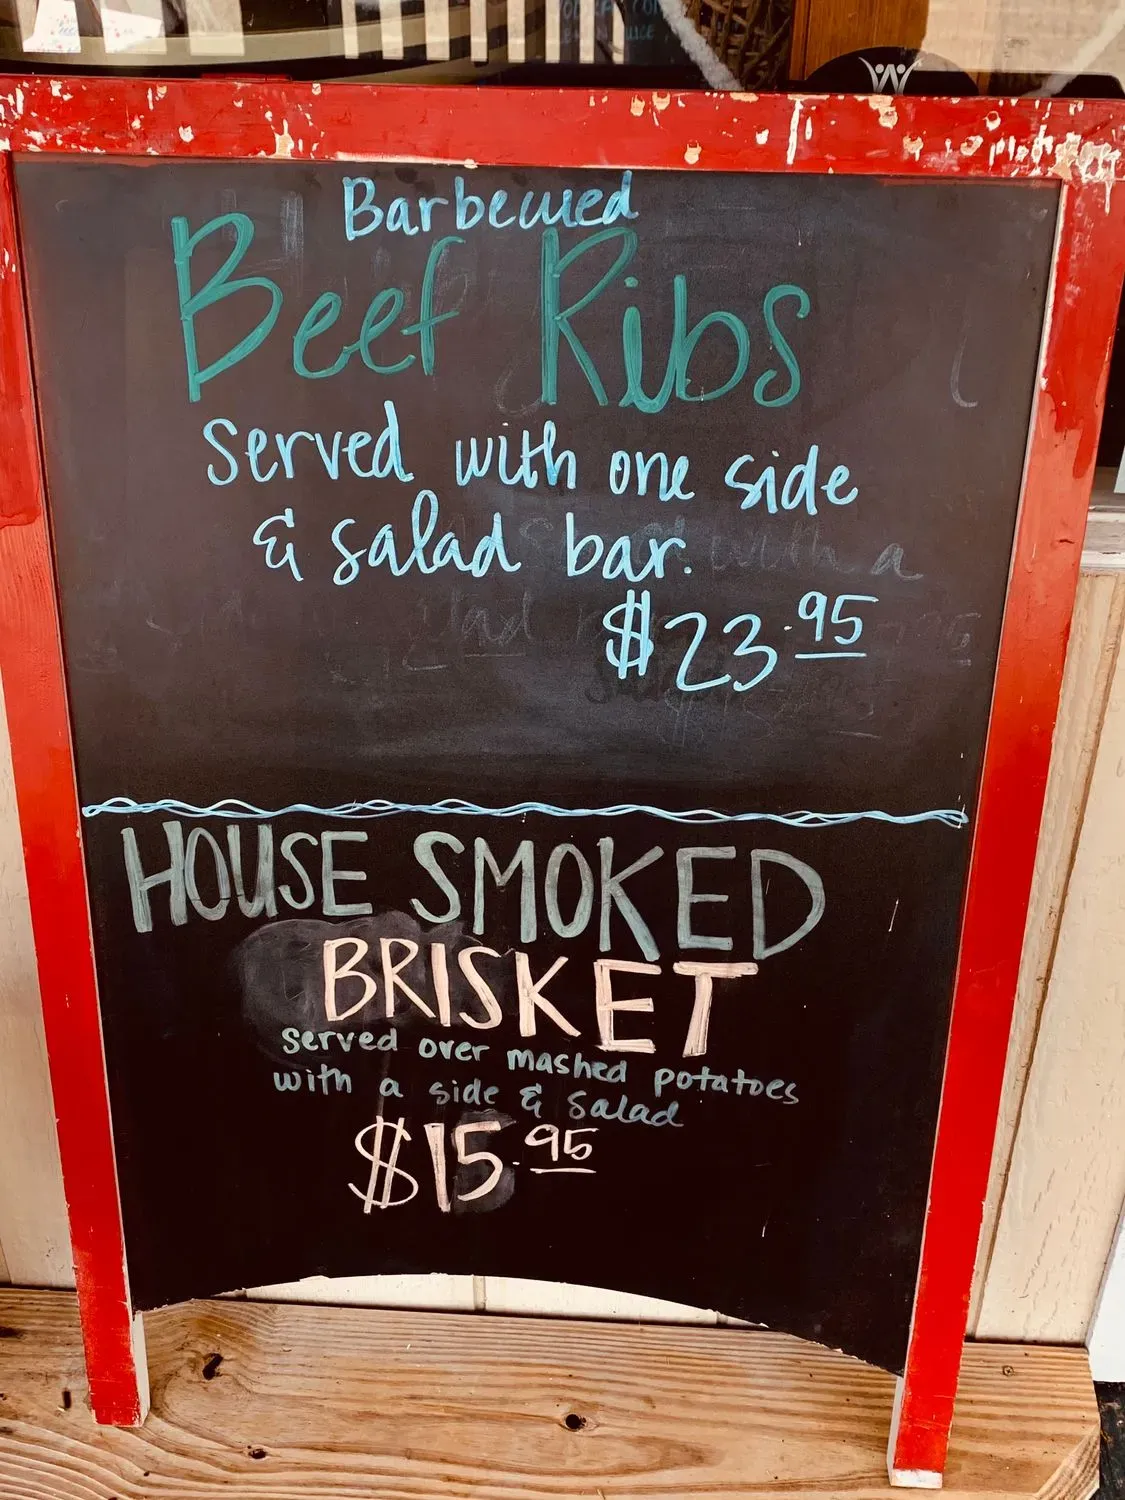 Barbecued
Beef Ribs
Served with one side
& salad bar.
$23.95
HOUSE SMOKED
BRISKET
served over mashed potatoes
with a side & salad
$15.95